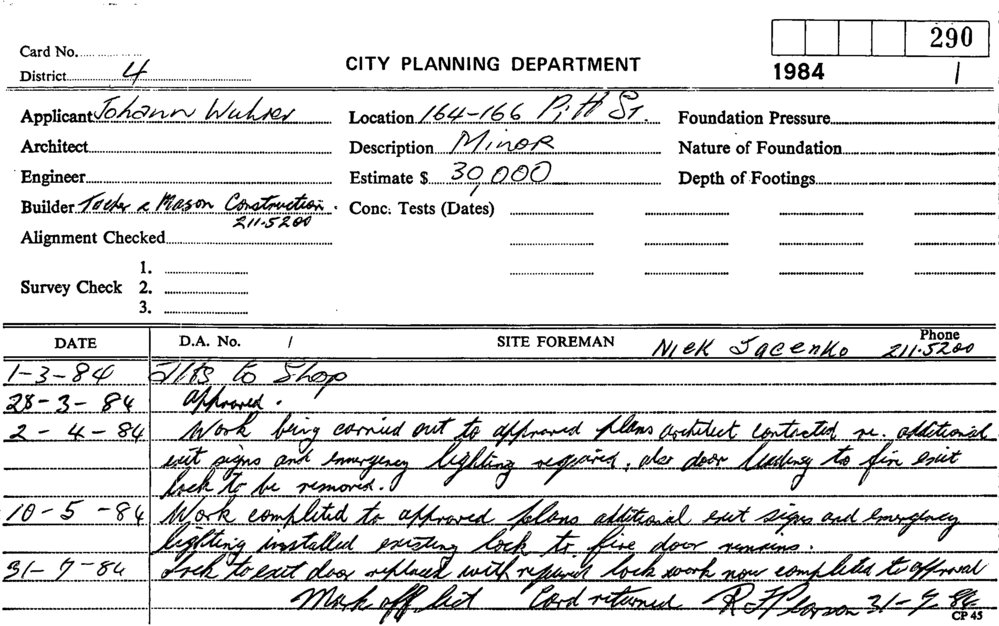 290
Card No.
District 4
CITY PLANNING DEPARTMENT
1984 /
Applicant Johann Wuhrer
Location 164-166 Pitt St.
Foundation Pressure
Architect
Description Minor
Nature of Foundation
Engineer
Estimate $ 30,000
Depth of Footings
Builder & Mason Construction.
211.5200
Conc. Tests (Dates)
Alignment Checked
Survey Check
1.
2.
3.
DATE D.A. No. / SITE FOREMAN Nick Jacenko Phone 211.5200
1-3-84 Alts to Shop
28-3-84 Approved.
2-4-84 Work being carried out to approved plans architect contacted re. additional
exit signs and emergency lighting required, also door leading to fire exit
lock to be removed.
10-5-84 Work completed to approved plans additional exit signs and emergency
lighting installed existing lock to fire door remains.
31-7-84 Lock to exit door replaced with required lock work now completed to approval
Mark off list Card returned R Pearson 31-7-84
CP 45